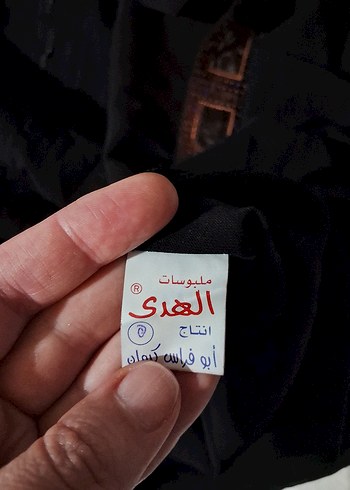 ملبوسات
الهدى ®
انتاج
أبو فراس كيوان